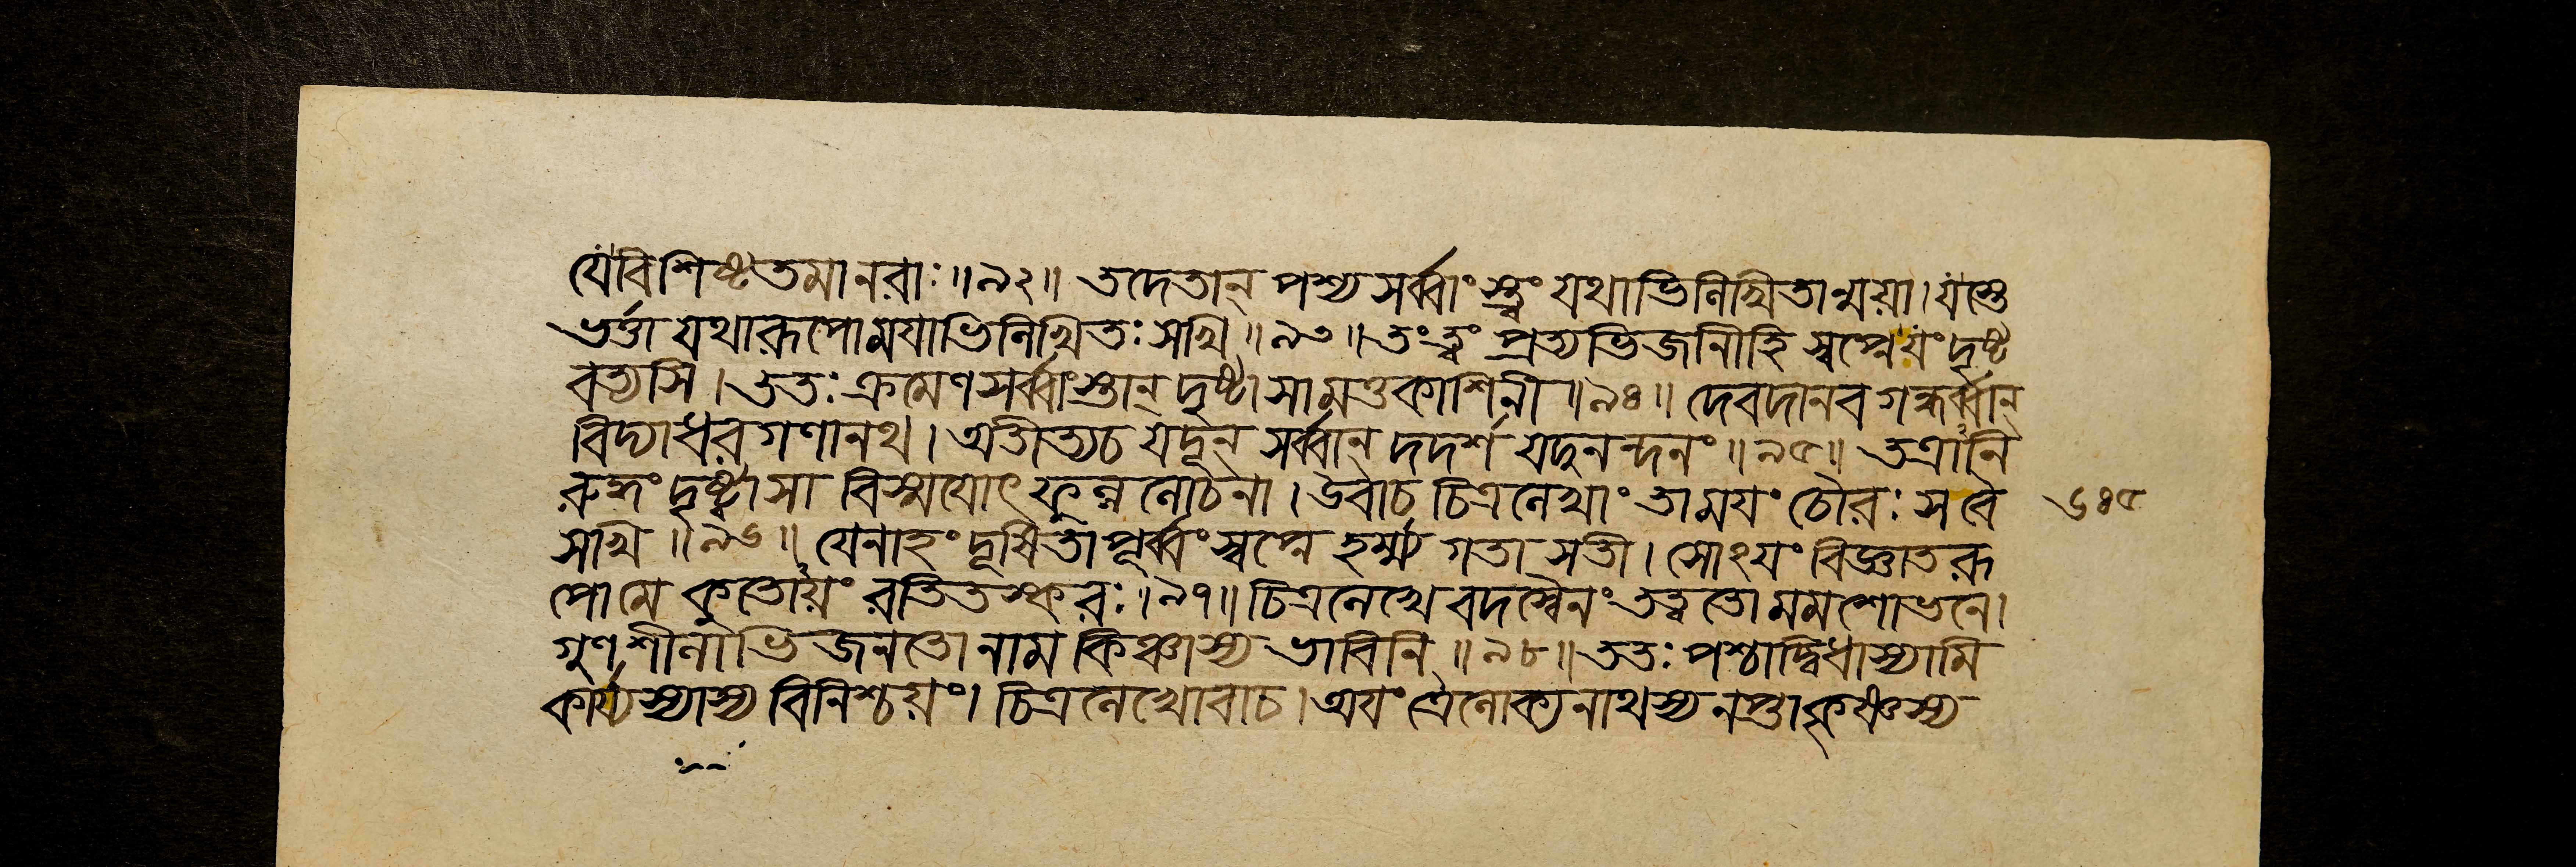 যে বিশিষ্টতমা নরাঃ॥৯২॥ তদেতান্ পশ্য সর্ব্বাংস্ত্বং যথাভিলিখিতান্ময়া। যস্তে
ভর্ত্তা যথারূপো মযাভিলিখিতঃ সখি॥৯৩॥ তং ত্বং প্রত্যভিজানীহি স্বপ্নে যং দৃষ্ট
বত্যসি। ততঃ ক্রমেণ সর্ব্বাংস্তান্ দৃষ্ট্বা সা মত্তকাশিনী॥৯৪॥ দেবদানবগন্ধর্ব্বান্
বিদ্যাধরগণানথ। অতীত্য চ যদূন্ সর্ব্বান্ দদর্শ যদুনন্দনং॥৯৫॥ তত্রানি
রুদ্ধং দৃষ্ট্বা সা বিস্ময়োৎফুল্ললোচনা। উবাচ চিত্রলেখাং তাময়ং চৌরঃ স বৈ
সখি॥৯৬॥ যেনাহং দূষিতা পূর্ব্বং স্বপ্নে হর্ম্ম্যগতা সতী। সোঽয়ং বিজ্ঞাতরূ
পো মে কুতোয়ং রতিতস্করঃ।৯৭॥ চিত্রলেখে বদস্বৈনং তত্ত্বতো মম শোভনে।
গুণশীলাভিজনতো নাম কিঞ্চাস্য ভাবিনি॥৯৮॥ ততঃ পশ্চাদ্বিধাস্যামি
কার্য্যস্যাস্য বিনিশ্চয়ং। চিত্রলেখোবাচ। অয়ং ত্রৈলোক্যনাথস্য নপ্তা কৃষ্ণস্য
৬৪৫